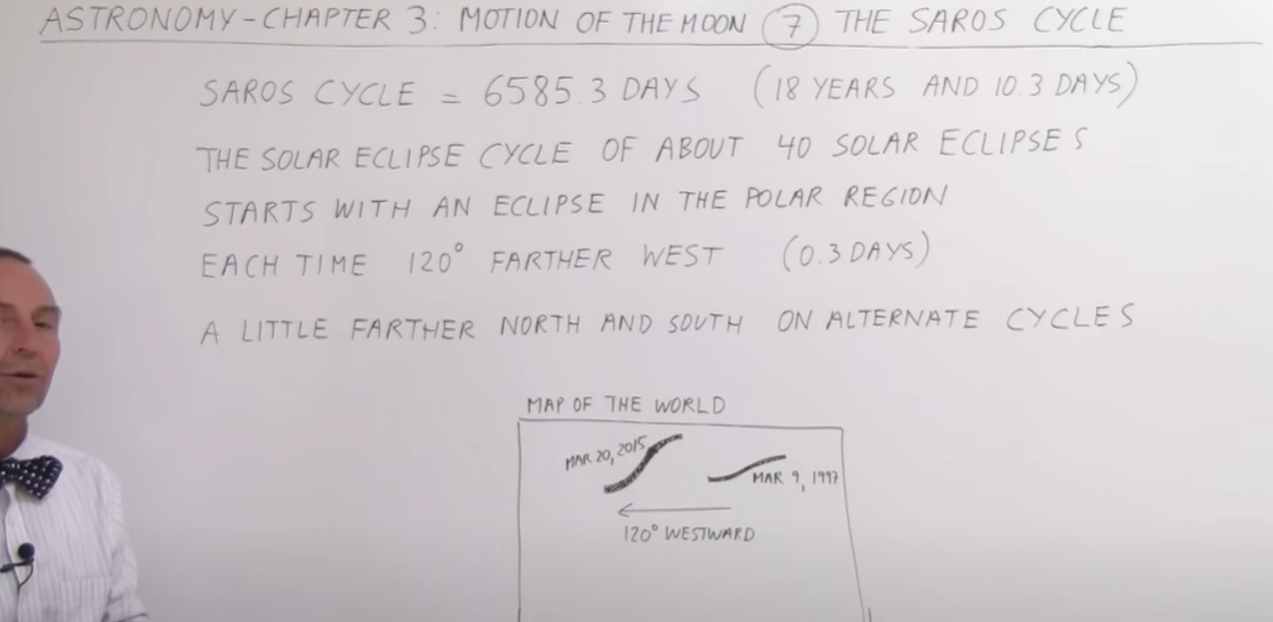 ASTRONOMY - CHAPTER 3: MOTION OF THE MOON 7 THE SAROS CYCLE
SAROS CYCLE = 6585.3 DAYS (18 YEARS AND 10.3 DAYS)
THE SOLAR ECLIPSE CYCLE OF ABOUT 40 SOLAR ECLIPSES
STARTS WITH AN ECLIPSE IN THE POLAR REGION
EACH TIME 120° FARTHER WEST (0.3 DAYS)
A LITTLE FARTHER NORTH AND SOUTH ON ALTERNATE CYCLES
MAP OF THE WORLD
MAR 20, 2015
MAR 9, 1997
120° WESTWARD